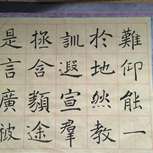 是言廣被
拯含類途
訓遐宣羣
於地然教
難仰能一